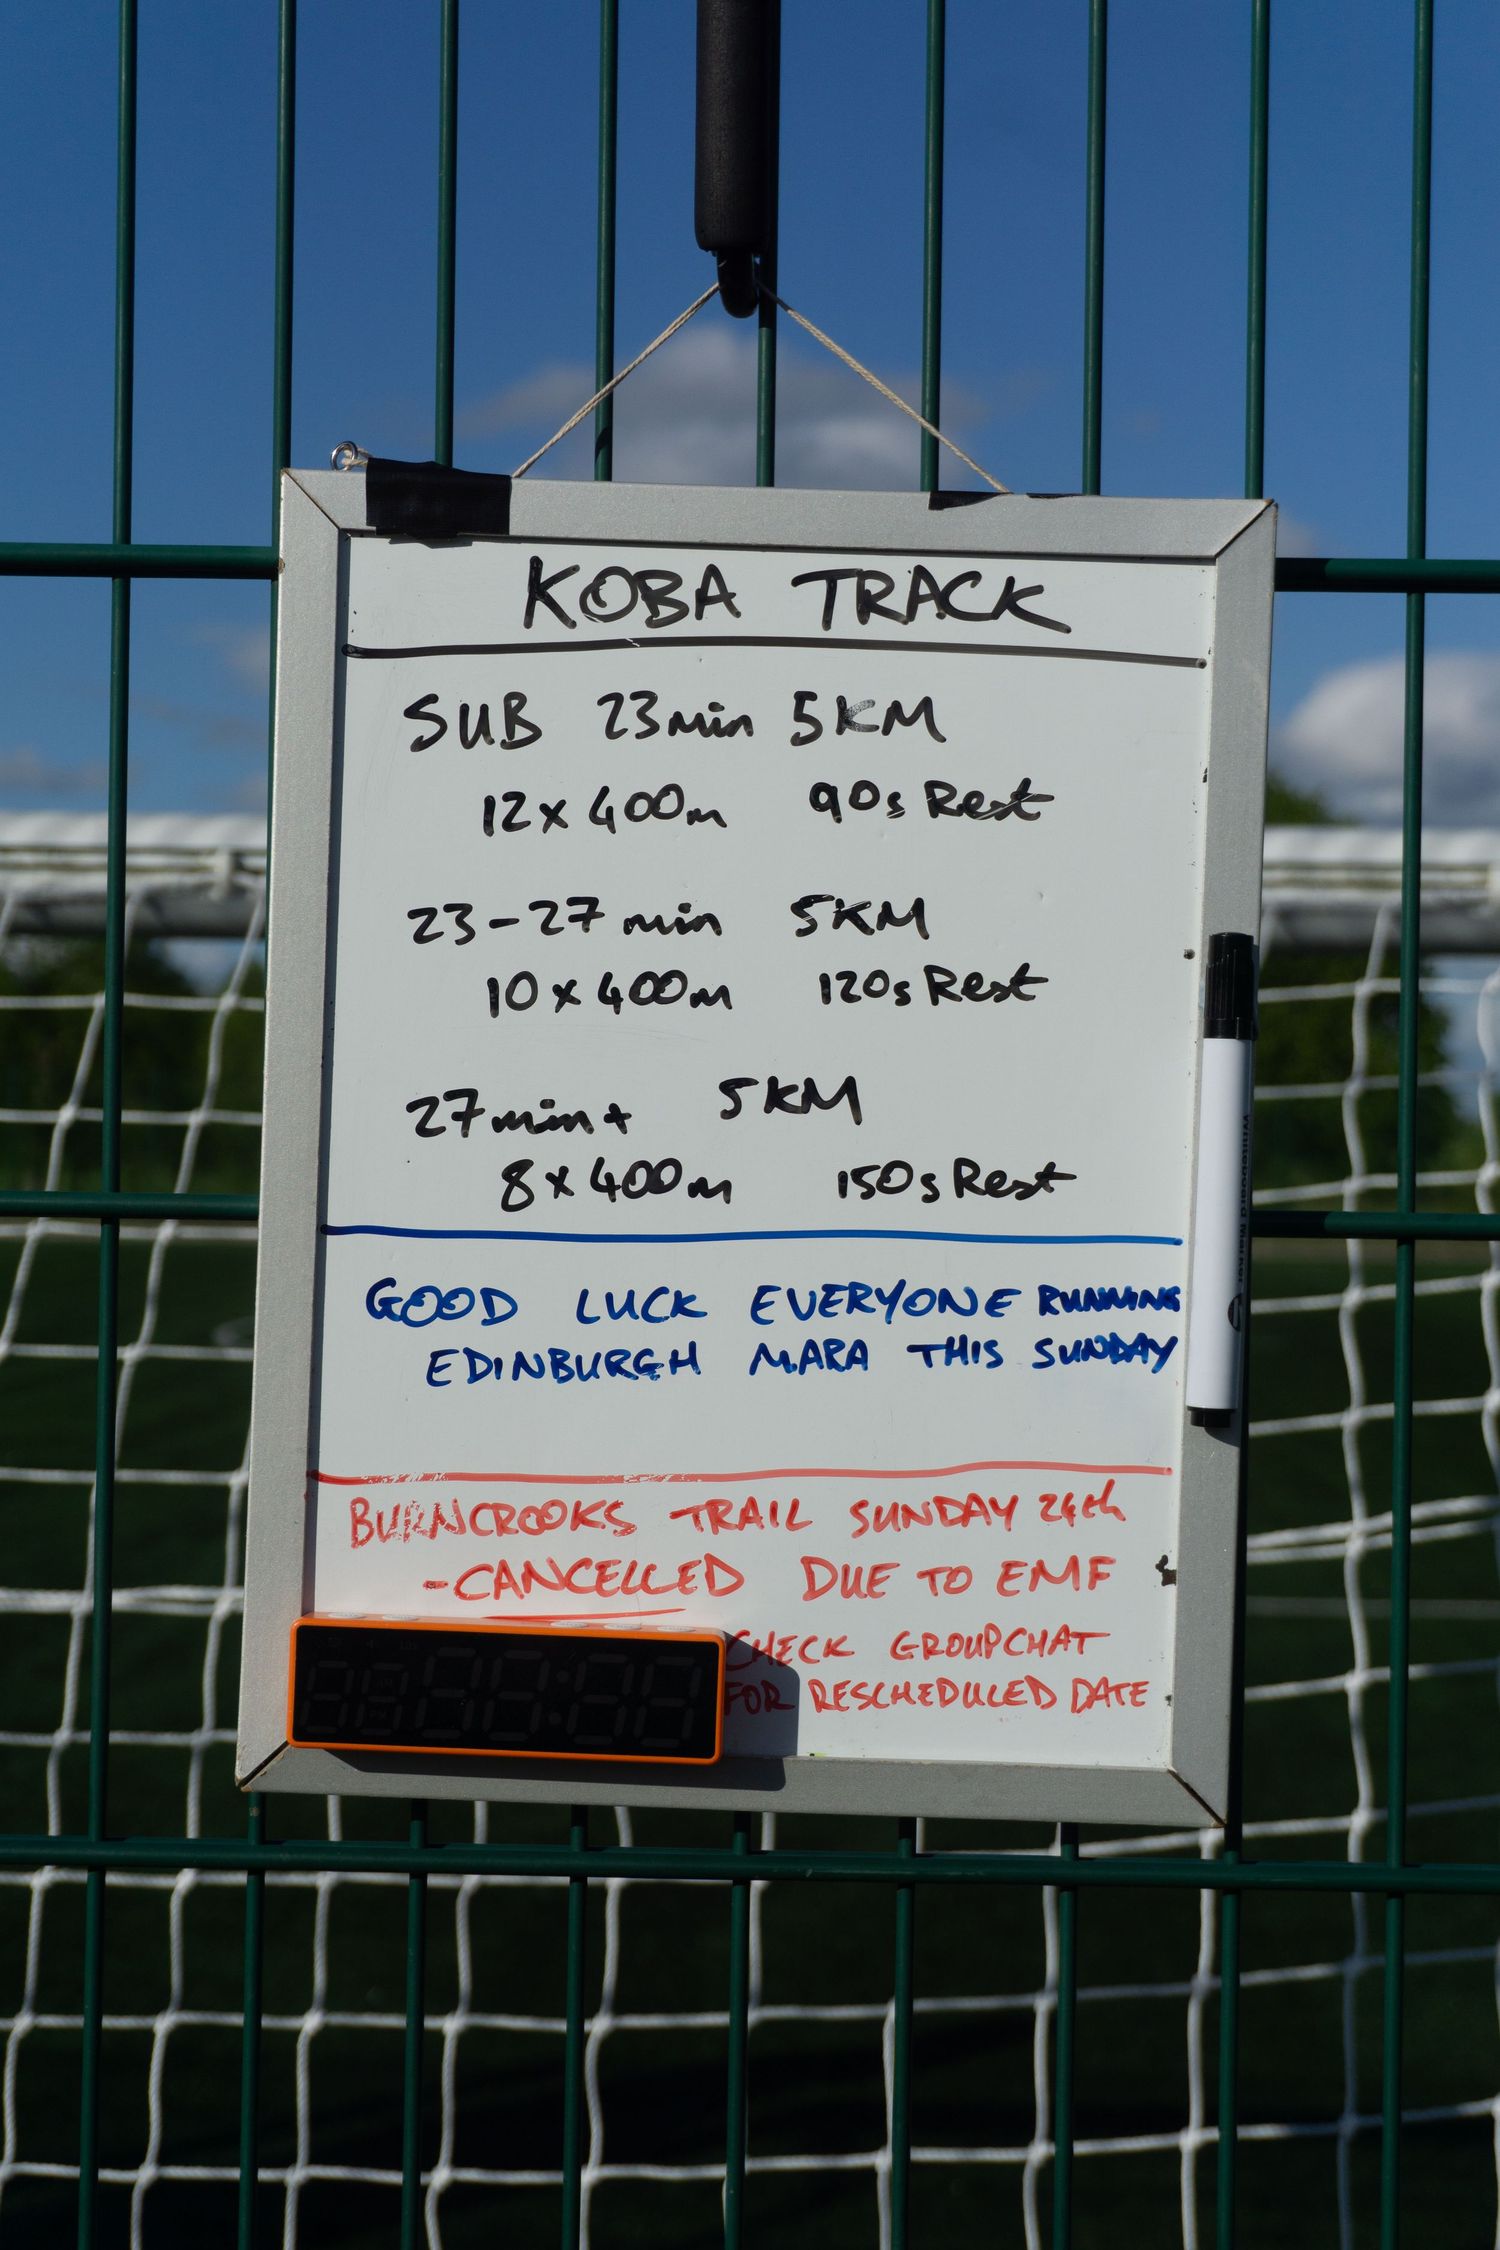 KOBA TRACK
SUB 23min 5KM
12x400m 90s Rest
23-27min 5KM
10x400m 120s Rest
27min+ 5KM
8x400m 150s Rest
GOOD LUCK EVERYONE RUNNING
EDINBURGH MARA THIS SUNDAY
BURNCROOKS TRAIL SUNDAY 24th
-CANCELLED DUE TO EMF
CHECK GROUPCHAT
FOR RESCHEDULED DATE